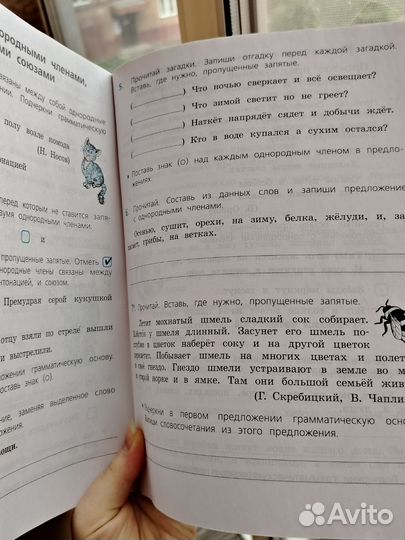 нородными членами,
ыми союзами
вязаны между собой однородные
ении. Подчеркни грамматическую
полу возле комода
(Н. Носов)
онацией
перед которым не ставится запя-
вумя однородными членами.
и
пропущенные запятые. Отметь
однородные члены связаны между
интонацией, и союзом.
Премудрая серой кукушкой
отцу взяли по стреле вышли
и выстрелили.
дложении грамматическую основу.
оставь знак (о).
ние, заменяя выделенное слово
ложения.
вощи.
5. Прочитай загадки. Запиши отгадку перед каждой загадкой.
Вставь, где нужно, пропущенные запятые.
( ) Что ночью сверкает и всё освещает?
( ) Что зимой светит но не греет?
( ) Наткёт напрядёт сядет и добычи ждёт.
( ) Кто в воде купался а сухим остался?
• Поставь знак (о) над каждым однородным членом в предло-
жениях.
6. Прочитай. Составь из данных слов и запиши предложение
с однородными членами.
Осенью, сушит, орехи, на зиму, белка, жёлуди, и, за
пасает, грибы, на ветках.
7. Прочитай. Вставь, где нужно, пропущенные запятые.
Летит мохнатый шмель сладкий сок собирает.
у шмеля длинный. Засунет его шмель по-
глубже в цветок наберёт соку и на другой цветок
перелетит. Побывает шмель на многих цветах и полет
в своё гнездо. Гнездо шмели устраивают в земле во м
в старой норке и в ямке. Там они большой семьёй жив
(Г. Скребицкий, В. Чапли
• Подчеркни в первом предложении грамматическую осно
Запиши словосочетания из этого предложения.
Avito